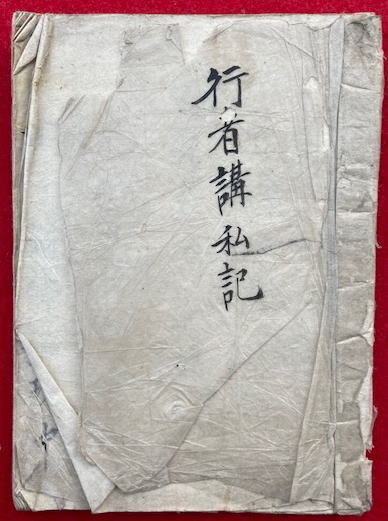 行者講私記